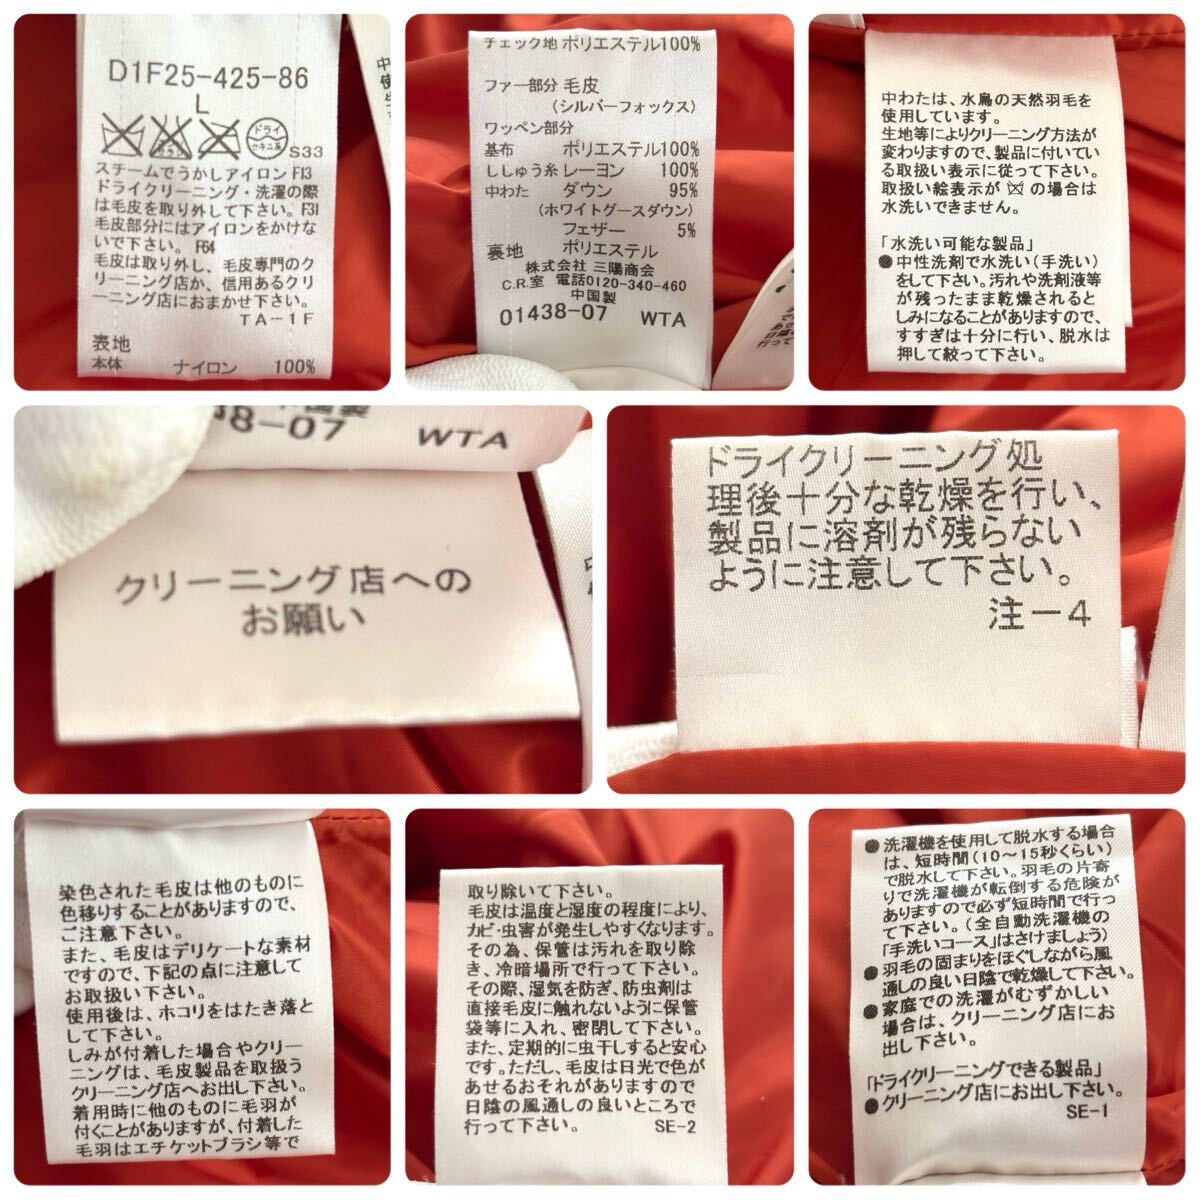 D1F25-425-86
L
ドライ
セキユ系
S33
スチームでうかしアイロン F13
ドライクリーニング・洗濯の際
は毛皮を取り外して下さい。F31
毛皮部分にはアイロンをかけな
いで下さい。 F64
毛皮は取り外し、毛皮専門のク
リーニング店か、信用あるクリ
ーニング店におまかせ下さい。
TA-1F
表地
本体 ナイロン 100%
チェック地 ポリエステル100%
ファー部分 毛皮
(シルバーフォックス)
ワッペン部分
基布 ポリエステル100%
ししゅう糸 レーヨン 100%
中わた ダウン 95%
(ホワイトグースダウン)
フェザー 5%
裏地 ポリエステル
株式会社 三陽商会
C.R.室 電話0120-340-460
中国製
01438-07 WTA
中わたは、水鳥の天然羽毛を
使用しています。
生地等によりクリーニング方法が
変わりますので、製品に付いてい
る取扱い表示に従って下さい。
取扱い絵表示が の場合は
水洗いできません。
「水洗い可能な製品」
●中性洗剤で水洗い(手洗い)
をして下さい。汚れや洗剤液等
が残ったまま乾燥されると
しみになることがありますので、
すすぎは十分に行い、脱水は
押して絞って下さい。
38-07 WTA
クリーニング店への
お願い
ドライクリーニング処
理後十分な乾燥を行い、
製品に溶剤が残らない
ように注意して下さい。
注-4
染色された毛皮は他のものに
色移りすることがありますので、
ご注意下さい。
また、毛皮はデリケートな素材
ですので、下記の点に注意して
お取扱い下さい。
使用後は、ホコリをはたき落と
して下さい。
しみが付着した場合やクリー
ニングは、毛皮製品を取扱う
クリーニング店へお出し下さい。
着用時に他のものに毛羽が
付くことがありますが、付着した
毛羽はエチケットブラシ等で
取り除いて下さい。
毛皮は温度と湿度の程度により、
カビ・虫害が発生しやすくなります。
その為、保管は汚れを取り除
き、冷暗場所で行って下さい。
その際、湿気を防ぎ、防虫剤は
直接毛皮に触れないように保管
袋等に入れ、密閉して下さい。
また、定期的に虫干しすると安心
です。ただし、毛皮は日光で色が
あせるおそれがありますので
日陰の風通しの良いところで
行って下さい。 SE-2
●洗濯機を使用して脱水する場合
は、短時間(10～15秒くらい)
で脱水して下さい。羽毛の片寄
りで洗濯機が転倒する危険が
ありますので必ず短時間で行っ
て下さい。(全自動洗濯機の
「手洗いコース」はさけましょう)
●羽毛の固まりをほぐしながら風
通しの良い日陰で乾燥して下さい。
●家庭での洗濯がむずかしい
場合は、クリーニング店にお
出し下さい。
「ドライクリーニングできる製品」
●クリーニング店にお出し下さい。
SE-1